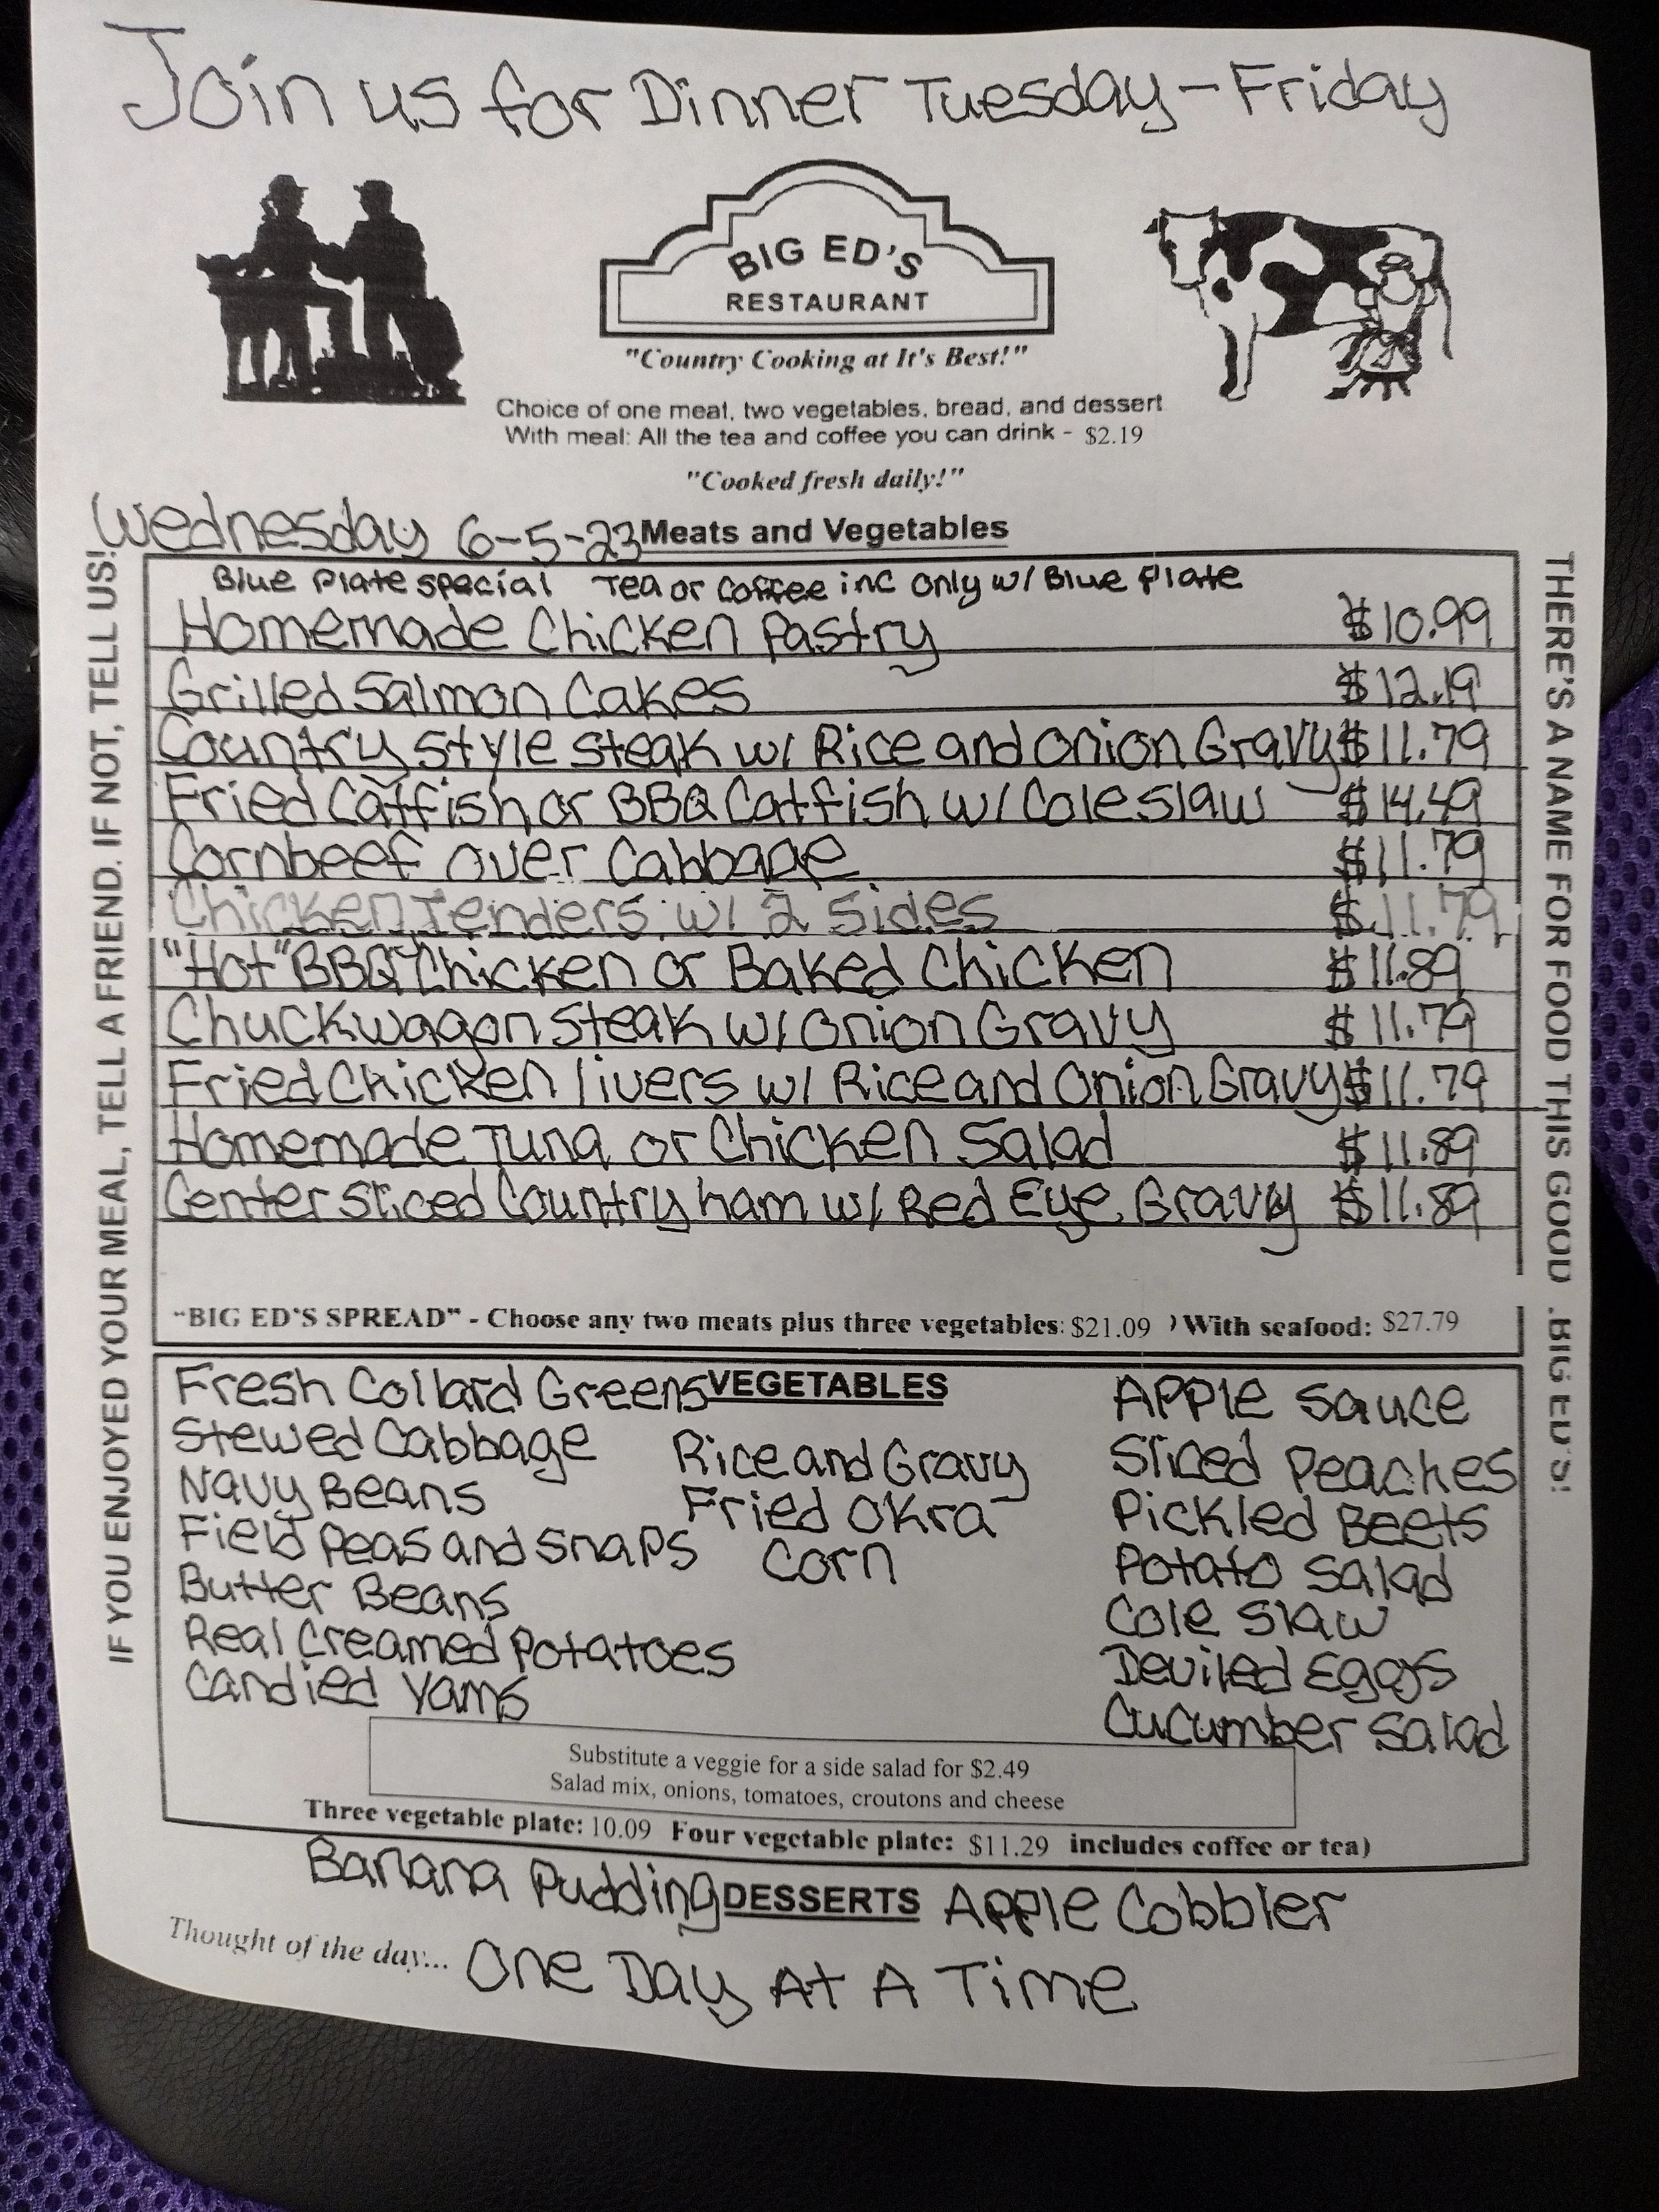 Join us for Dinner Tuesday - Friday
BIG ED'S
RESTAURANT
"Country Cooking at It's Best!"
Choice of one meat, two vegetables, bread, and dessert
With meal: All the tea and coffee you can drink - $2.19
"Cooked fresh daily!"
Wednesday 6-5-23 Meats and Vegetables
Blue Plate special Tea or Coffee inc Only w/ Blue Plate
Homemade Chicken Pastry $10.99
Grilled Salmon Cakes $12.19
Country Style Steak w/ Rice and Onion Gravy $11.79
Fried Catfish or BBQ Catfish w/ Coleslaw $14.49
Cornbeef over Cabbage $11.79
Chicken Tenders w/ 2 Sides $11.79
"Hot" BBQ Chicken or Baked Chicken $11.89
Chuckwagon Steak w/ Onion Gravy $11.79
Fried Chicken livers w/ Rice and Onion Gravy $11.79
Homemade Tuna or Chicken Salad $11.89
Center Sliced Country ham w/ Red Eye Gravy $11.89
"BIG ED'S SPREAD" - Choose any two meats plus three vegetables: $21.09 ) With seafood: $27.79
VEGETABLES
Fresh Collard Greens
Stewed Cabbage
Navy Beans
Field Peas and Snaps
Butter Beans
Real Creamed Potatoes
Candied Yams
Rice and Gravy
Fried Okra
Corn
Apple Sauce
Sliced Peaches
Pickled Beets
Potato Salad
Cole Slaw
Deviled Eggs
Cucumber Salad
Substitute a veggie for a side salad for $2.49
Salad mix, onions, tomatoes, croutons and cheese
Three vegetable plate: 10.09 Four vegetable plate: $11.29 includes coffee or tea)
Banana Pudding DESSERTS Apple Cobbler
Thought of the day... One Day At A Time
IF YOU ENJOYED YOUR MEAL, TELL A FRIEND. IF NOT, TELL US!
THERE'S A NAME FOR FOOD THIS GOOD .BIG ED'S!